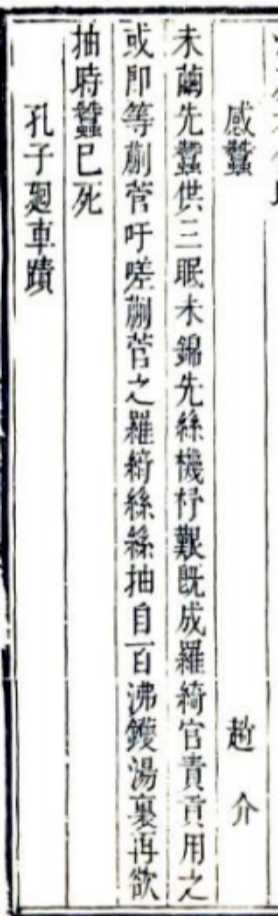 感蠶 趙介
未繭先蠶供三眠未錦先絲機杼艱既成羅綺官責貢用之
或即等蒯菅吁嗟蒯菅之羅綺絲絲抽自百沸鑊湯裏再欲
抽時蠶已死
孔子廻車蹟